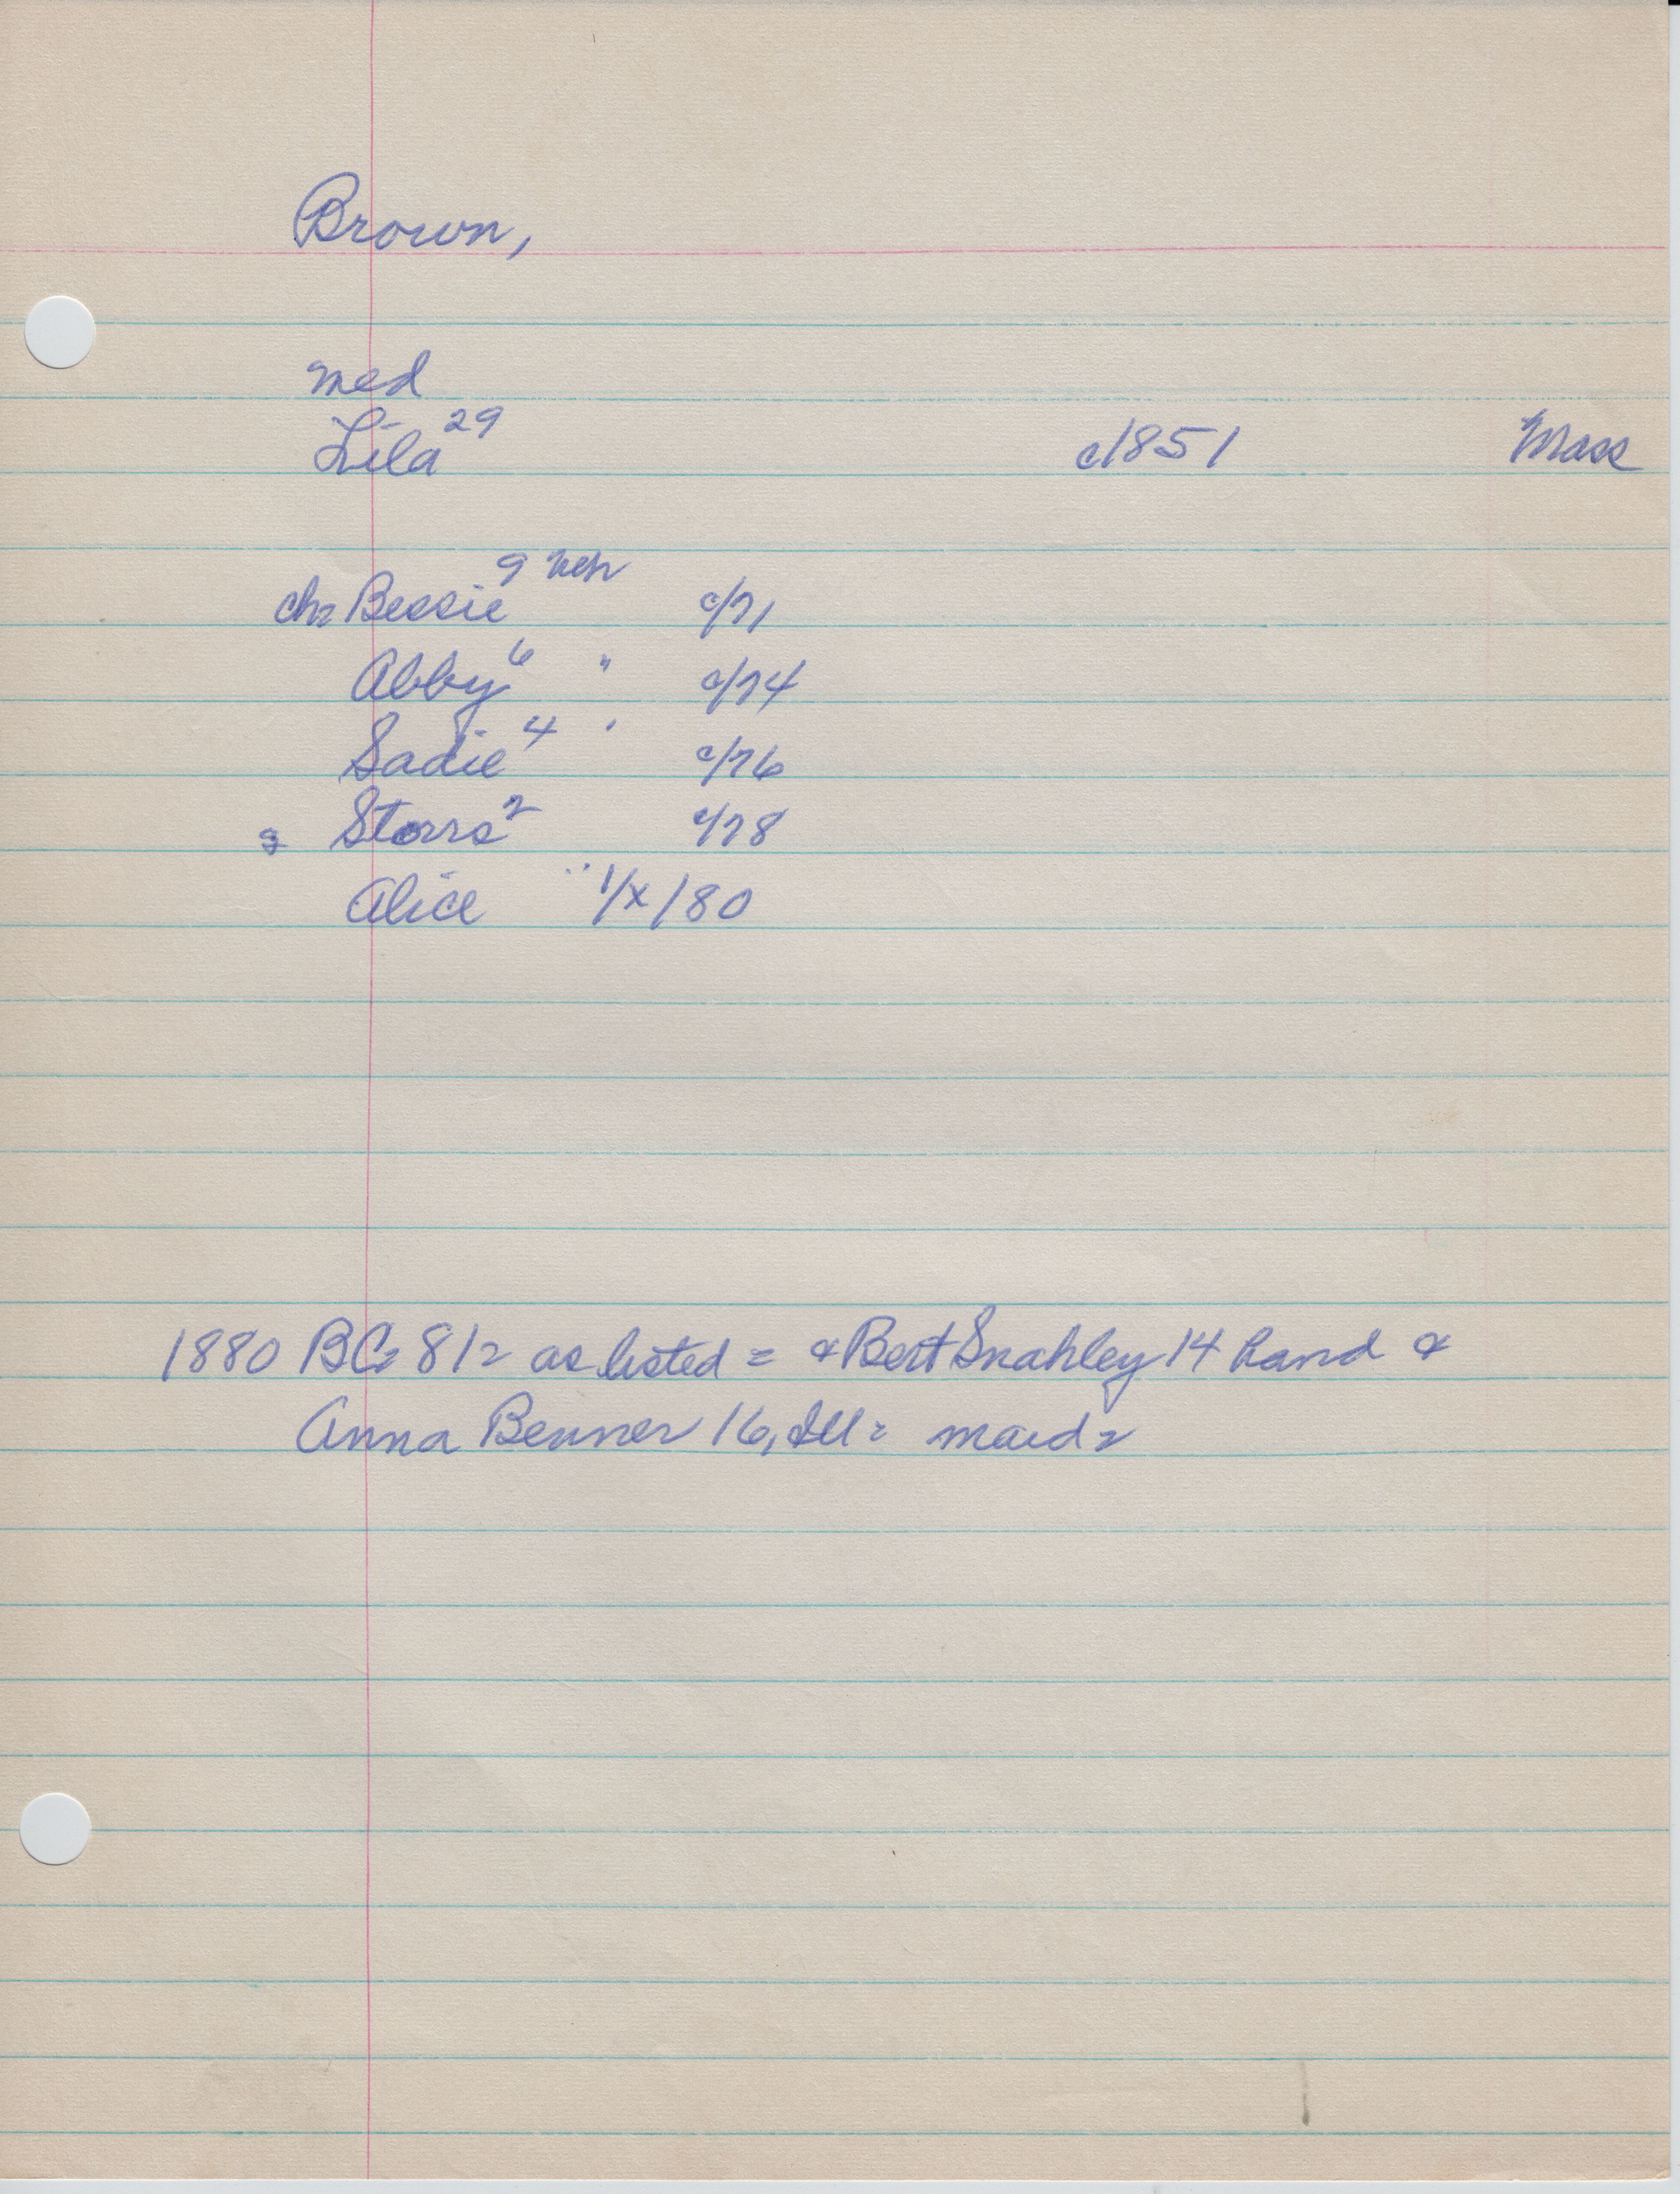 Brown,
med
Lila 29 c1851 Mass
ch= Bessie 9 Neb c/71
Abby 6 " c/74
Sadie 4 ' c/76
s Storrs 2 c/78
Alice " 1/x/80
1880 BC= 812 as listed = & Bert Snahley 14 hand &
Anna Benner 16, Ill = maid=